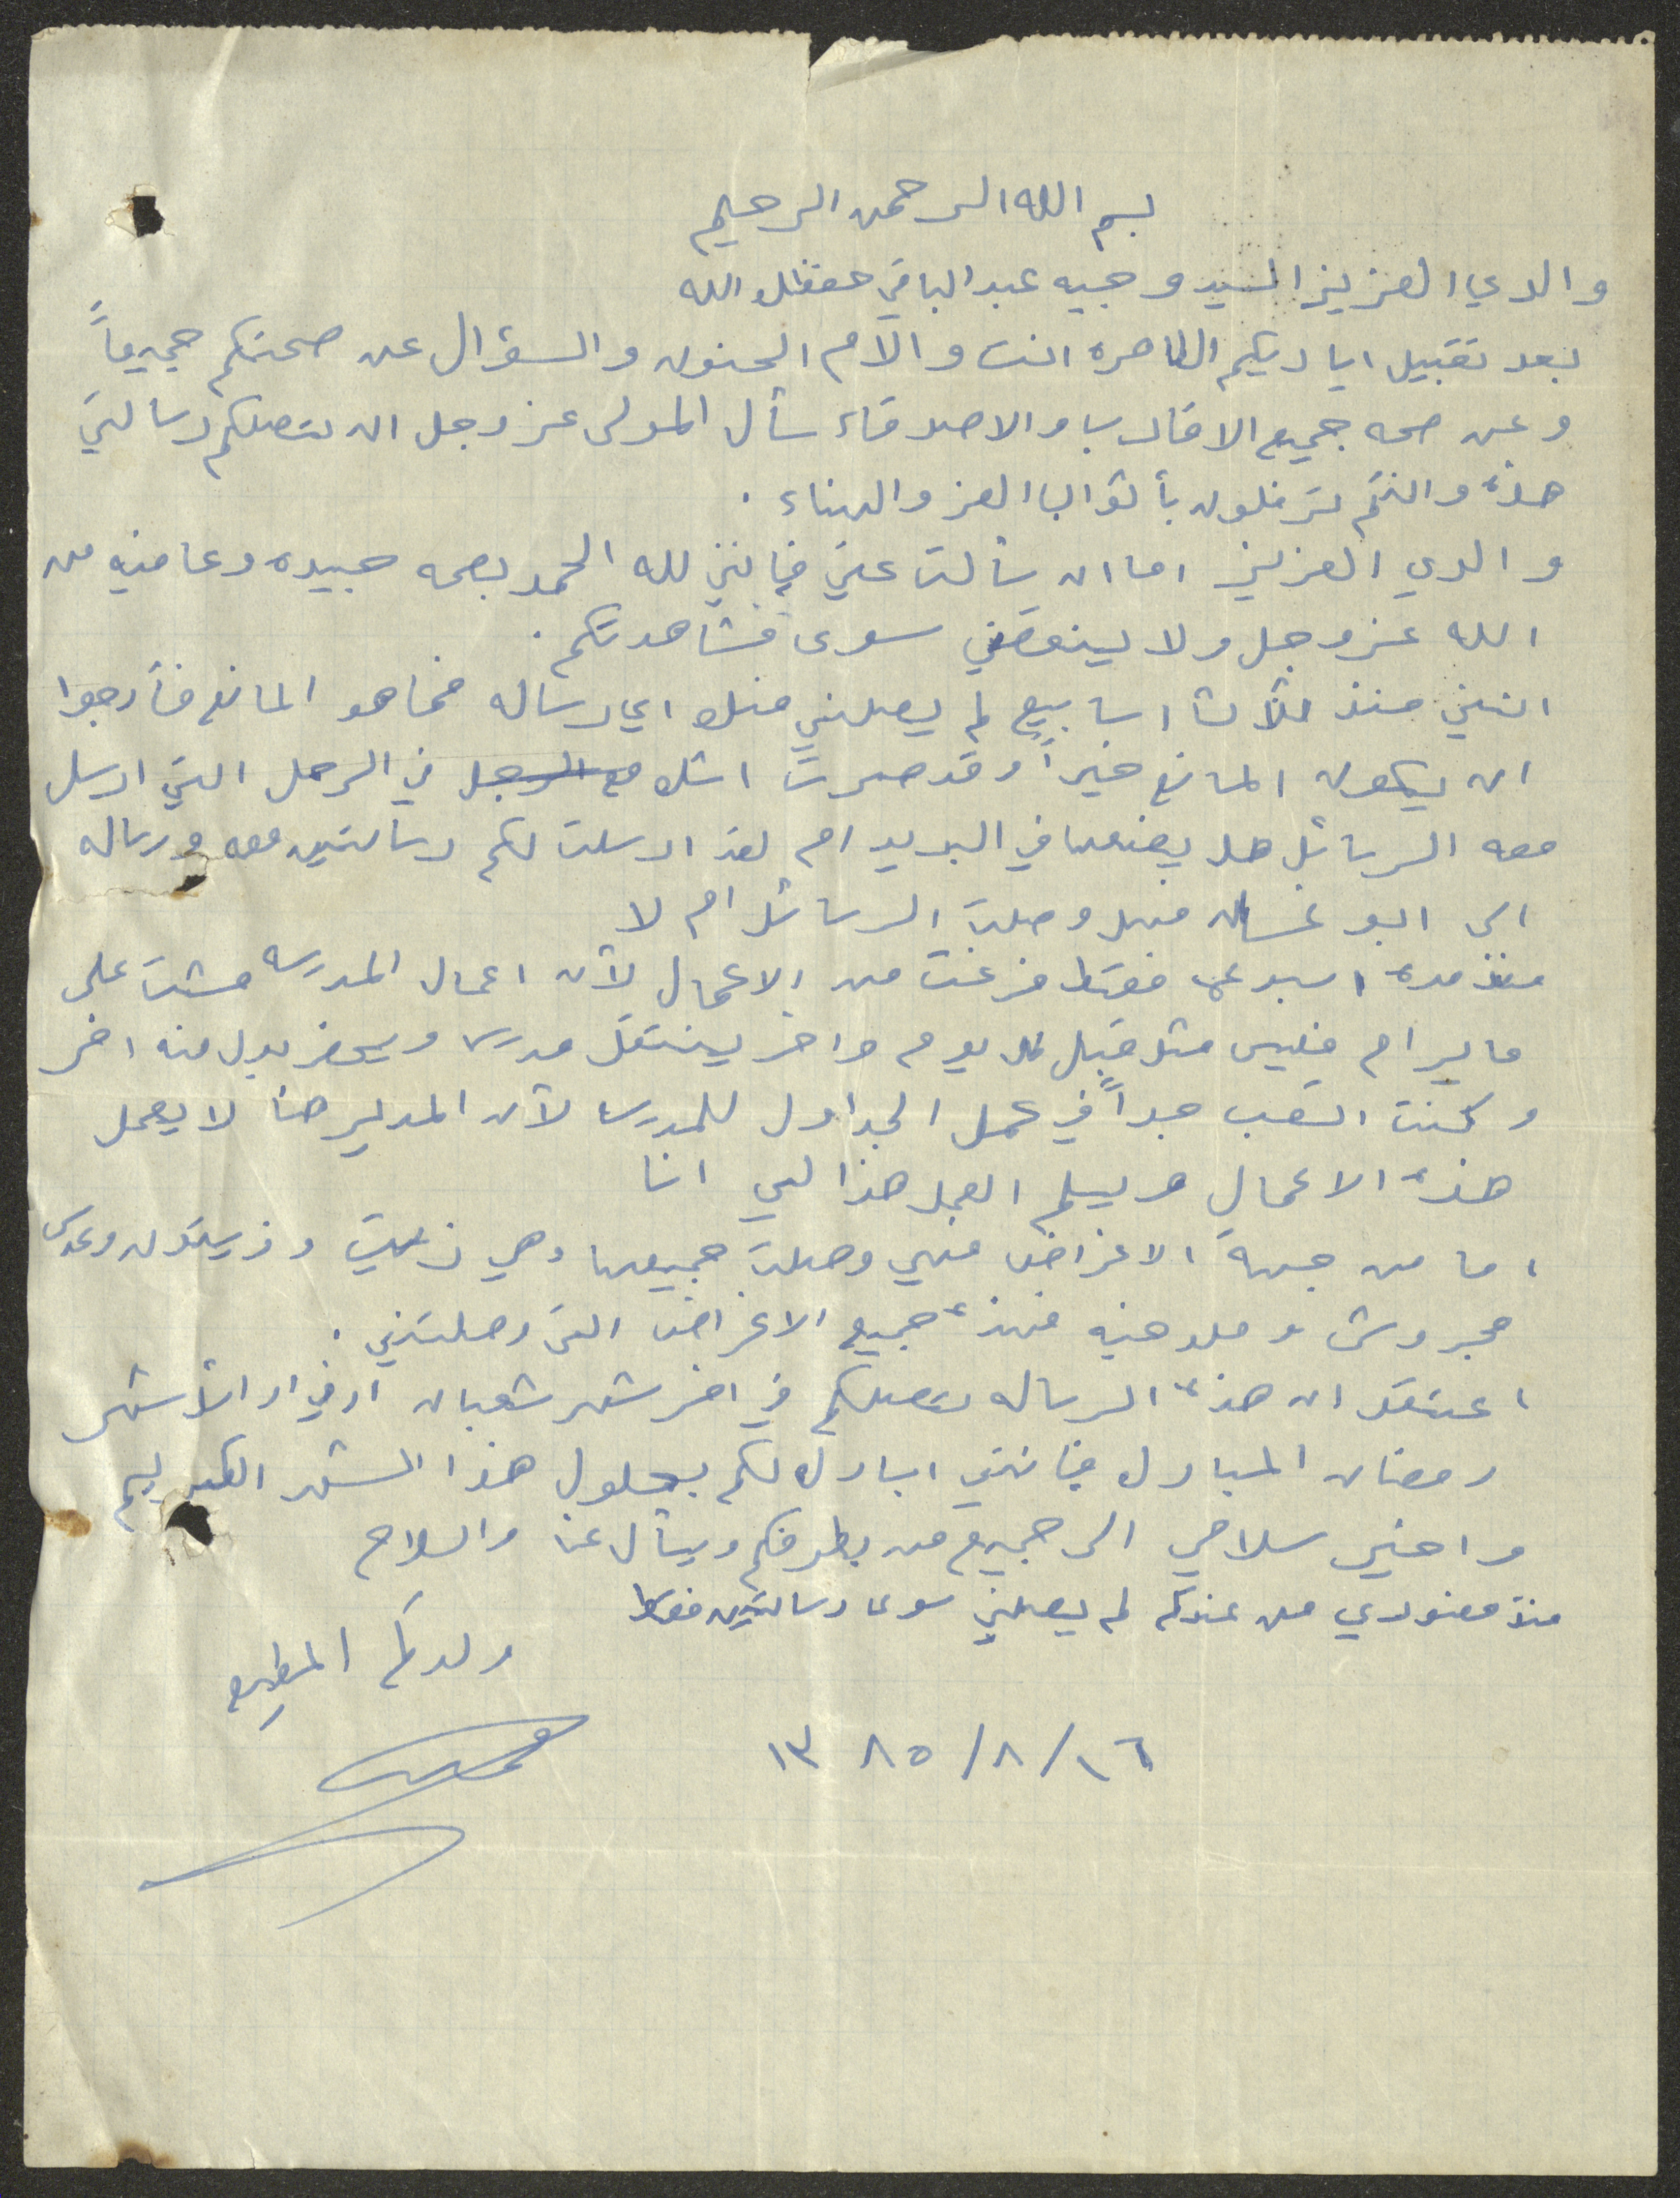 بسم الله الرحمن الرحيم
والدي العزيز السيد وجيه عبد الباقي حفظك الله
بعد تقبيل اياديكم الطاهرة انت والام الحنون والسؤال عن صحتكم جميعاً
وعن صحه جميع الاقارب والاصدقاء سأل المولى عز وجل ان تصلكم رسالتي
هذه وانتم ترفلون بأثواب العز والهناء .
والدي العزيز اما ان سألت عني فإنني لله الحمد بصحه جيده وعافيه من
الله عز وجل ولا ينقصني سوى مشاهدتكم .
انني منذ ثلاث اسابيع لم يصلني منك اي رساله فما هو المانع فأرجوا
ان يكون المانع خيراً وقد صرت اشك مع الرجل في الرجل التي ارسل
معه الرسائل هل يضعها في البريد ام لقد ارسلت لكم رسالتين معه ورساله
الى ابو غسان فهل وصلت الرسائل ام لا
منذ مدة اسبوعي فقط فرغت من الاعمال لأن اعمال المدرسه مشت على
مايرام فليس مثل قبل كل يوم واخر ينتقل مدرس ويحضر بدل منه اخر
وكنت اتعب جداً في عمل الجداول للمدرسه لأن المدير هنا لا يعمل
هذه الاعمال ويسلم العمل هذا لي انا
اما من جهة الاغراض فهي وصلت جميعها وهي زيت وزيتون وعدس
مجروش وملوخيه فهذه جميع الاغراض التي وصلتني .
اعتقد ان هذه الرساله ستصلكم في اخر شهر شعبان او في اوائل شهر
رمضان المبارك فإنني ابارك لكم بحلول هذا الشهر الكريم
واخير سلامي الى جميع من بطرفكم ويسأل عنا والسلام
منذ حضوري من عندكم لم يصلني سوى رسالتين فقط
ولدكم المطيع
١٣٨٥/٨/١٦